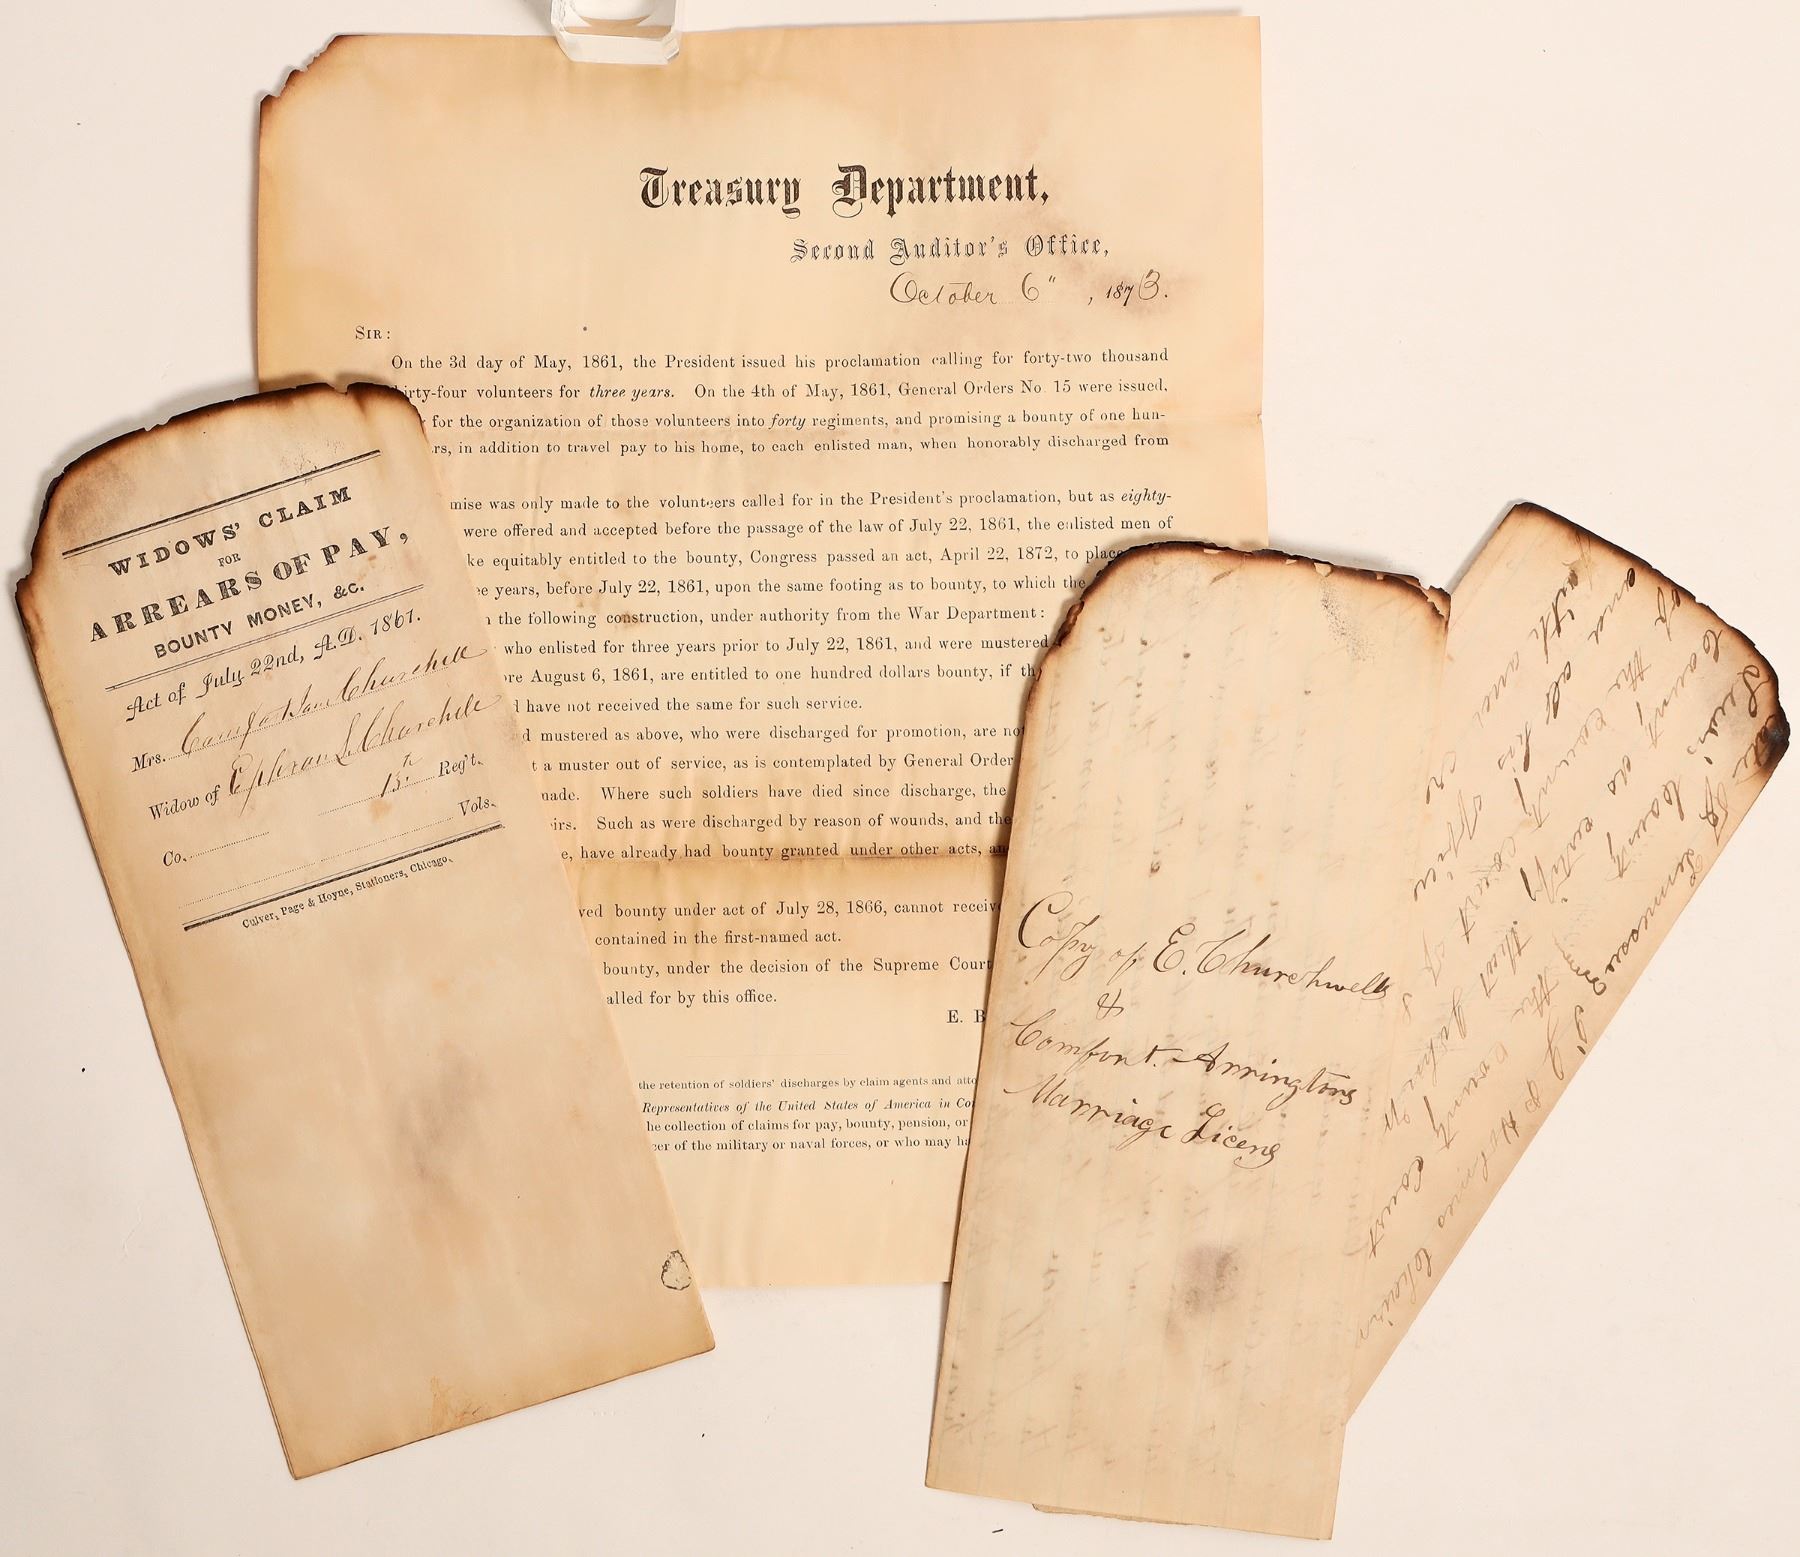 Treasury Department,
Second Auditor's Office,
October 6" , 1873.
SIR:
On the 3d day of May, 1861, the President issued his proclamation calling for forty-two thousand
hirty-four volunteers for three years. On the 4th of May, 1861, General Orders No. 15 were issued,
for the organization of those volunteers into forty regiments, and promising a bounty of one hun-
rs, in addition to travel pay to his home, to each enlisted man, when honorably discharged from
mise was only made to the volunteers called for in the President's proclamation, but as eighty-
were offered and accepted before the passage of the law of July 22, 1861, the enlisted men of
ke equitably entitled to the bounty, Congress passed an act, April 22, 1872, to place
ee years, before July 22, 1861, upon the same footing as to bounty, to which the
the following construction, under authority from the War Department:
who enlisted for three years prior to July 22, 1861, and were mustered
ore August 6, 1861, are entitled to one hundred dollars bounty, if th
d have not received the same for such service.
d mustered as above, who were discharged for promotion, are no
t a muster out of service, as is contemplated by General Order
made. Where such soldiers have died since discharge, the
irs. Such as were discharged by reason of wounds, and the
e, have already had bounty granted under other acts, an
ved bounty under act of July 28, 1866, cannot receiv
contained in the first-named act.
bounty, under the decision of the Supreme Court
alled for by this office.
E. B
the retention of soldiers' discharges by claim agents and atto
Representatives of the United States of America in Co
he collection of claims for pay, bounty, pension, or
cer of the military or naval forces, or who may ha
WIDOWS' CLAIM
FOR
ARREARS OF PAY,
BOUNTY MONEY, &C.
Act of July 22nd, A.D. 1861.
Mrs. Comfort Jane Churchill
Widow of Ephram L Churchill
13th Reg't.
Co. Vols.
Culver, Page & Hoyne, Stationers, Chicago.
Copy of E. Churchwells
&
Comfort Arringtons
Marriage Licens
State of Tennessee
Lewis County
County court
of the county
and all his